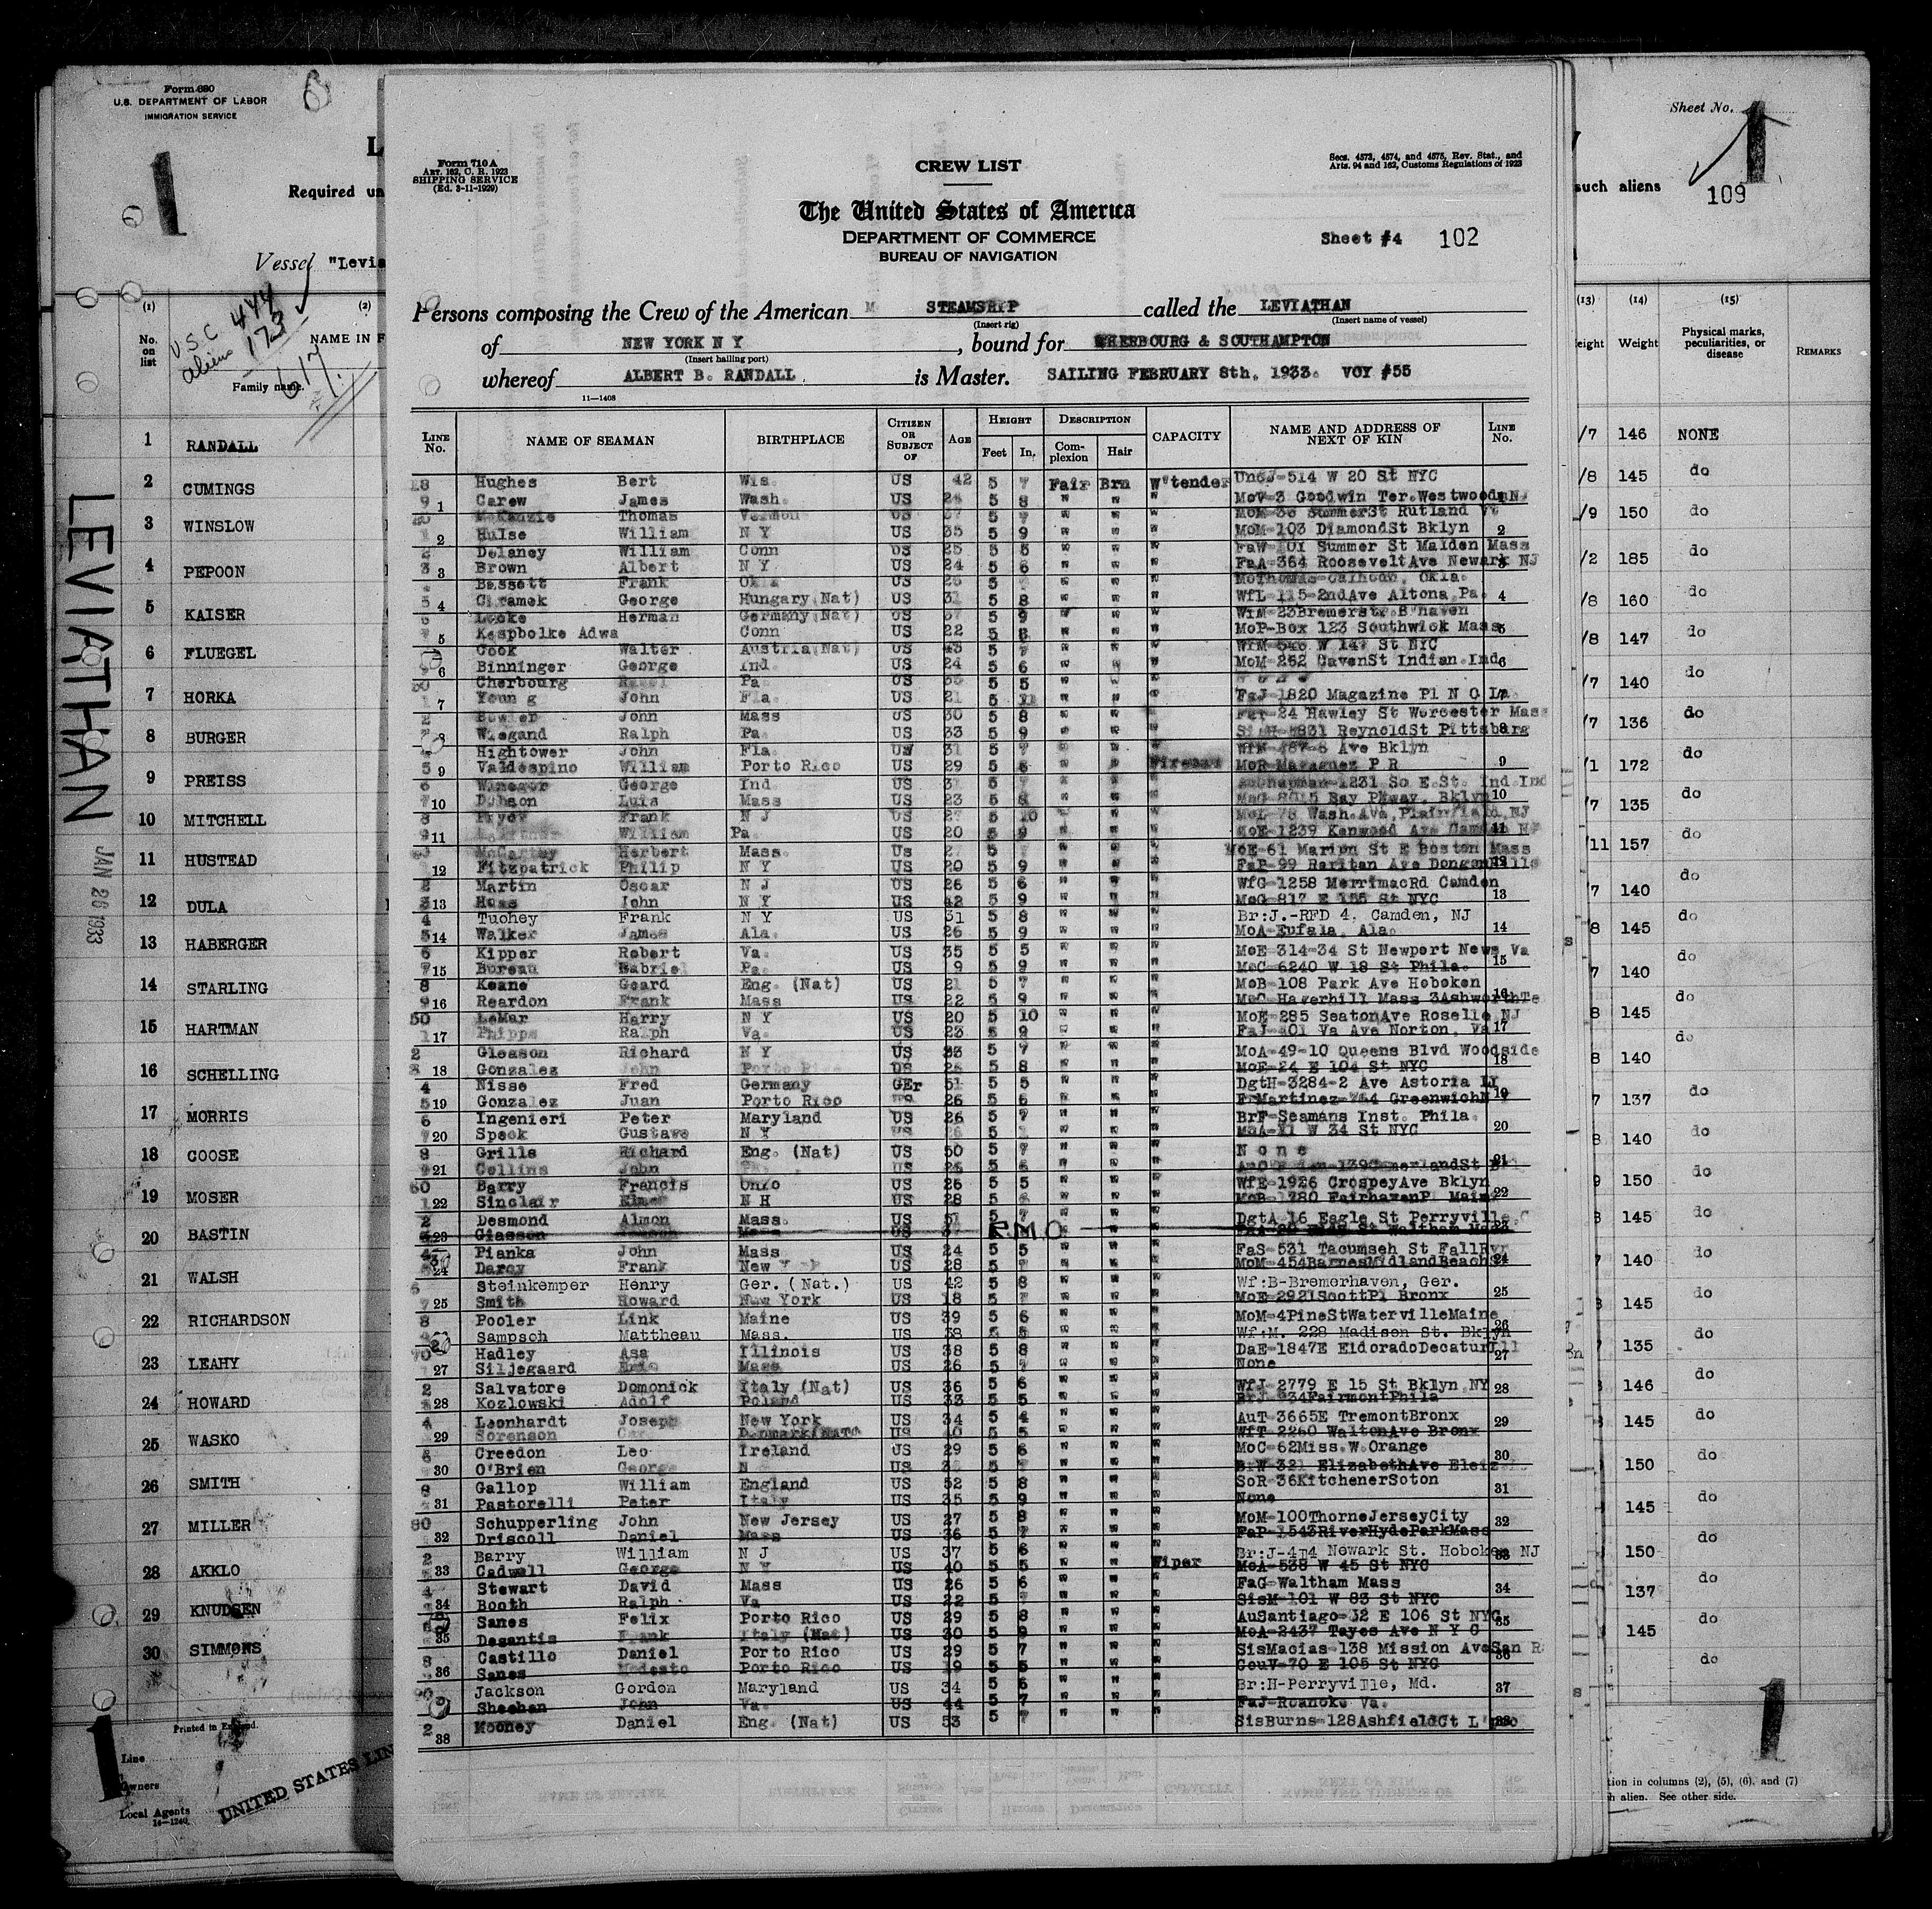 Form 680
U.S. DEPARTMENT OF LABOR
IMMIGRATION SERVICE
1
Required un
Vessel "Levia
(1)
(2)
No. on list
NAME IN F
Family name.
U.S.C. 444
aliens 173
617
1 RANDALL
2 CUMINGS
3 WINSLOW
4 PEPOON
5 KAISER
6 FLUEGEL
7 HORKA
8 BURGER
9 PREISS
10 MITCHELL
11 HUSTEAD
12 DULA
13 HABERGER
14 STARLING
15 HARTMAN
16 SCHELLING
17 MORRIS
18 GOOSE
19 MOSER
20 BASTIN
21 WALSH
22 RICHARDSON
23 LEAHY
24 HOWARD
25 WASKO
26 SMITH
27 MILLER
28 AKKLO
29 KNUDSEN
30 SIMMONS
LEVIATHAN
JAN 26 1933
1
Line
Owners
Local Agents
14—1240
UNITED STATES LIN
Form 710 A
ART. 162, C. R. 1923
SHIPPING SERVICE
(Ed. 3-11-1929)
CREW LIST
Secs. 4573, 4574, and 4575, Rev. Stat., and
Arts. 94 and 162, Customs Regulations of 1923
The United States of America
DEPARTMENT OF COMMERCE
BUREAU OF NAVIGATION
Sheet #4 102
Persons composing the Crew of the American STEAMSHIP called the LEVIATHAN
(Insert rig) (Insert name of vessel)
of NEW YORK N Y, bound for CHERBOURG & SOUTHAMPTON
(Insert hailing port)
whereof ALBERT B. RANDALL is Master. SAILING FEBRUARY 8th, 1933. VOY #55
11—1408
LINE No. NAME OF SEAMAN BIRTHPLACE CITIZEN OR SUBJECT OF AGE HEIGHT Feet In. DESCRIPTION Complexion Hair CAPACITY NAME AND ADDRESS OF NEXT OF KIN LINE No.
Hughes Bert Wis. US 42 5 7 Fair Brn W'tender 514 W 20 St NYC
1 Carew James Wash. US 5 8 " " " MoV-3 Goodwin Ter. Westwood NJ
McKanzie Thomas Vermon US 5 7 " " " Rutland Vt
2 Hulse William N Y US 35 5 9 " " " MoM-103 DiamondSt Bklyn 2
Delaney William Conn US 25 5 5 " " " FaW-101 Summer St Malden Mass
3 Brown Albert N Y US 24 5 6 " " " FaA-364 RooseveltAve Newark NJ
Bassett Frank Okla US 5 " " " Calhoun, Okla.
4 George Hungary(Nat) US 31 5 8 " " " WfL-115-2ndAve Altona Pa. 4
Herman Germany(Nat) US 5 9 " " " WiM-23Bremerstr. B'haven
5 Kaspbolke Adwa Conn US 22 5 8 " " " MoP-Box 123 Southwick Mass
Cook Walter Austria(Nat) US 43 5 7 " " " W 147 St NYC
6 Binninger George Ind. US 24 5 6 " " " MoM-262 CavenSt Indian.Ind 6
Cherbourg Pa US 5 5 " " "
7 Young John Fla. US 21 5 11 " " " FaJ-1820 Magazine Pl N O La.
Bowler John Mass US 30 5 8 " " " 24 Hawley St Worcester Mass
Wiegand Ralph Pa. US 33 5 9 " " " ReynoldSt Pittsburg
Hightower John Fla. US 31 5 7 " " " Ave Bklyn
9 Valdespino William Porto Rico US 29 5 6 " " Fireman MoR-Mayaguez P R 9
Winegor George Ind US 31 5 7 " " " 1231 So E.St. Ind.Ind
10 Dobson Luis Mass US 23 5 8 " " " Bay Pkway. Bklyn 10
Pryor Frank N J US 5 10 " " " MoL-78 Wash.Ave, Plainfield, NJ
11 William Pa. US 20 5 9 " " " MoE-1239 Kenwood Ave Camden NJ
McCartey Herbert Mass. Us 5 7 " " " MoE-61 Marion St E Boston Mass
12 Fitzpatrick Philip N Y US 20 5 9 " " " FaP-99 Raritan Ave Dongan Hills
Martin Oscar N J US 26 5 6 " " " WfG-1258 MerrimacRd Camden
13 John N Y US 42 5 9 " " " MoG-817 E 155 St NYC 13
4 Tuohey Frank N Y US 31 5 8 " " " Br:J.-RFD 4, Camden, NJ
14 Walker James Ala. US 26 5 9 " " " MoA-Eufala, Ala. 14
6 Kipper Robert Va. US 35 5 5 " " " MoE-314-34 St Newport News Va
15 Bureau Gabriel Pa. US 9 5 9 " " " MoC-6240 W 18 St Phila. 15
8 Keane Geard Eng. (Nat) US 21 5 7 " " " MoB-108 Park Ave Hoboken
16 Reardon Frank Mass US 22 5 9 " " " MoC-Haverhill Mass 3AshworthTe 16
50 LeMar Harry N Y US 20 5 10 " " " MoE-285 SeatonAve Roselle NJ
17 Phipps Ralph Va. US 23 5 9 " " " FaJ-401 Va Ave Norton, Va 17
2 Gleason Richard N Y US 33 5 7 " " " MoA-49-10 Queens Blvd Woodside
18 Gonzalez John Porto Rico US 5 8 " " " MoE-24 E 104 St NYC 18
4 Nisse Fred Germany GEr 51 5 5 " " " DgtH-3284-2 Ave Astoria LI
19 Gonzalez Juan Porto Rico 26 5 6 " " " FrMartinez-764 Greenwich 19
6 Ingenieri Peter Maryland US 26 5 7 " " " BrF-Seamans Inst. Phila.
20 Speck Gustave N Y 5 " " " W 34 St NYC 20
8 Grills Richard Eng. (Nat) US 50 5 7 " " " None
21 Collins John US 5 6 " " " 21
60 Barry Francis Ohio US 26 5 5 " " " WfE-1926 CrospeyAve Bklyn
22 Sinclair Elmer N H US 28 5 " " " FairhavenPl Maine 22
2 Desmond Almon Mass. US 51 5 7 " " " DgtA 16 Eagle St Perryville, C
23 Mass US RMO Waltham 23
Pianka John Mass US 24 5 5 " " " FaS-531 Tacumseh St FallRvr
24 Darcy Frank New US 28 5 7 " " " MoM-454BarnesMidlandBeach 24
Steinkemper Henry Ger. (Nat.) US 42 5 8 " " " Wf:B-Bremerhaven, Ger.
25 Smith Howard New York US 18 5 7 " " " MoE-2921ScottPl Bronx 25
8 Pooler Link Maine US 39 5 6 " " " MoM-4PineStWatervilleMaine
Sampsch Mattheau Mass. US 38 5 5 " " " Wf:M. 228 Madison St. Bklyn 26
70 Hadley Asa Illinois US 38 5 8 " " " DaE-1847E EldoradoDecaturIll
27 Siljegaard Eric Mass US 26 5 7 " " " None 27
2 Salvatore Domonick Italy (Nat) US 36 5 6 " " " WfJ-2779 E 15 St Bklyn NY
28 Kozlowski Adolf Poland US 33 5 5 " " " BrJ-934FairmontPhila 28
4 Leonhardt Joseph New York US 34 5 4 " " " AuT-3665E TremontBronx
29 Sorenson Denmark(NAT) US 40 5 5 " " " WfT-2260 WaltonAve Bronx 29
6 Creedon Leo Ireland US 29 5 6 " " " MoC-62Miss.W.Orange
30 O'Brien George N US 5 7 " " " BrW-321 ElizabethAve Eleiz 30
8 Gallop William England US 52 5 8 " " " SoR-36KitchenerSoton
31 Pastorelli Peter Italy US 35 5 9 " " " None 31
80 Schupperling John New Jersey US 27 5 8 " " " MoM-100ThorneJerseyCity
32 Driscoll Daniel Mass US 36 5 7 " " " FaP-1543RiverHydeParkMass 32
2 Barry William N J US 37 5 6 " " " Br:J-414 Newark St. Hoboken NJ
33 Cadwell George N Y US 40 5 5 " " Wiper MoA-538 W 45 St NYC 33
4 Stewart David Mass US 26 5 6 " " " FaG-Waltham Mass
34 Booth Ralph Va US 22 5 7 " " " SisM-101 W 83 St NYC 34
Sanes Felix Porto Rico US 29 5 8 " " " AuSantiago-12 E 106 St NYC
35 Desantis Frank Italy (Nat) US 30 5 9 " " " MoA-2437 Ave N Y C 35
8 Castillo Daniel Porto Rico US 29 5 7 " " " SisMacias-138 Mission AveSan R
36 Sanes Modesto Porto Rico US 19 5 5 " " " CouV-70 E 105 St NYC 36
90 Jackson Gordon Maryland US 34 5 6 " " " Br:H-Perryville, Md. 37
Sheehan John Va. US 44 5 7 " " " FaJ-Roanoke Va.
2 38 Mooney Daniel Eng. (Nat) US 53 5 7 " " " SisBurns-128AshfieldCt L'poo 38
Sheet No. 1
such aliens
109
(13) (14) (15)
eight Weight Physical marks, peculiarities, or disease REMARKS
/7 146 NONE
/8 145 do
/9 150 do
/2 185 do
/8 160 do
/8 147 do
/7 140 do
/7 136 do
/1 172 do
/7 135 do
/11 157 do
/7 140 do
8 145 do
7 140 do
8 145 do
8 140 do
7 137 do
8 140 do
9 150 do
8 145 do
7 140 do
145 do
135 do
146 do
145 do
150 do
145 do
150 do
137 do
145 do
do
1
tion in columns (2), (5), (6), and (7)
h alien. See other side.